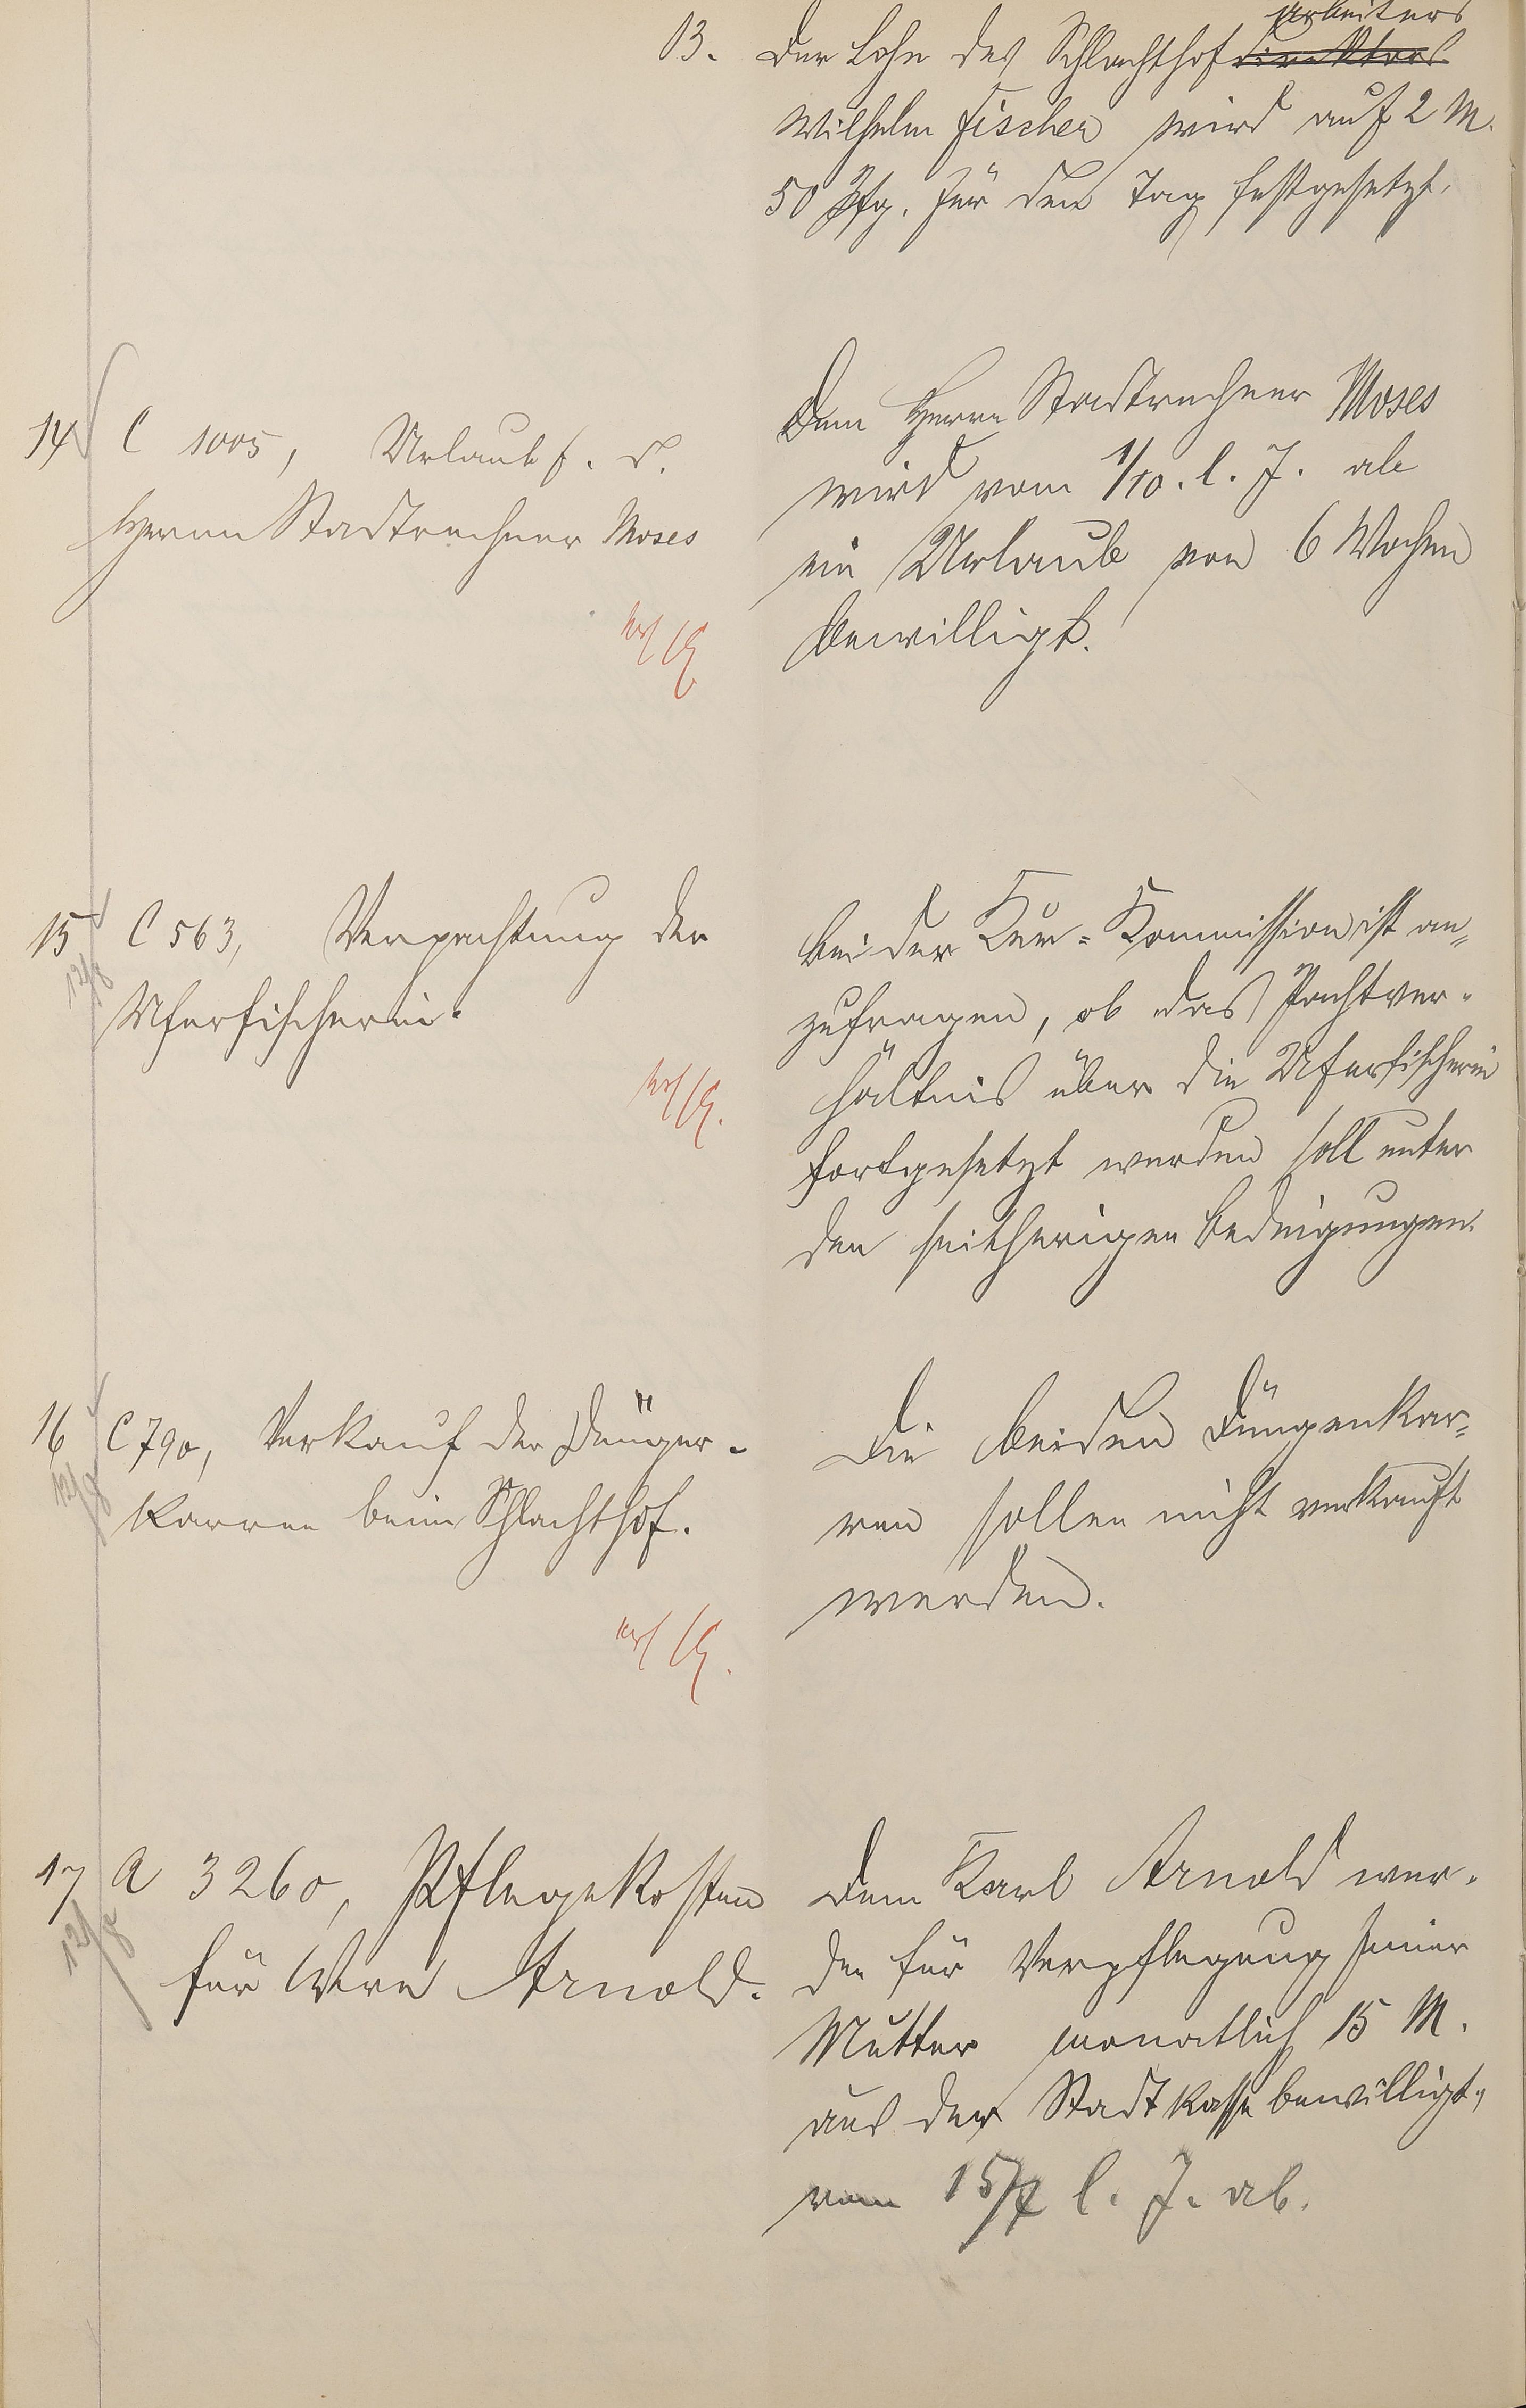 arbeiters
B. Der Lohn des Schlachthofdirektors
Wilhelm Fischer wird auf 2 M.
50 Pfg. für den Tag festgesetzt.
14 C 1005, Urlaub f. d.
Herrn Stadtrechner Moses
Dem Herrn Stadtrechner Moses
wird vom 1/10. l. J. ab
ein Urlaub von 6 Wochen
bewilligt.
15 C 563, Verpachtung der
12/8
Uferfischerei.
Bei der Kur-Kommission ist an-
zufragen, ob das Pachtver-
hältnis über die Uferfischerei
fortgesetzt werden soll unter
den seitherigen Bedingungen.
16 C 790, Verkauf der Dünger-
12/8
karren beim Schlachthof.
Die beiden Düngerkar-
ren sollen nicht verkauft
werden.
17 A 3260, Pflegekosten
12/8
für Wwe Arnold.
Dem Karl Arnold wer-
den für Verpflegung seiner
Mutter monatlich 15 M.
aus der Stadtkasse bewilligt,
vom 15/7 l. J. ab.